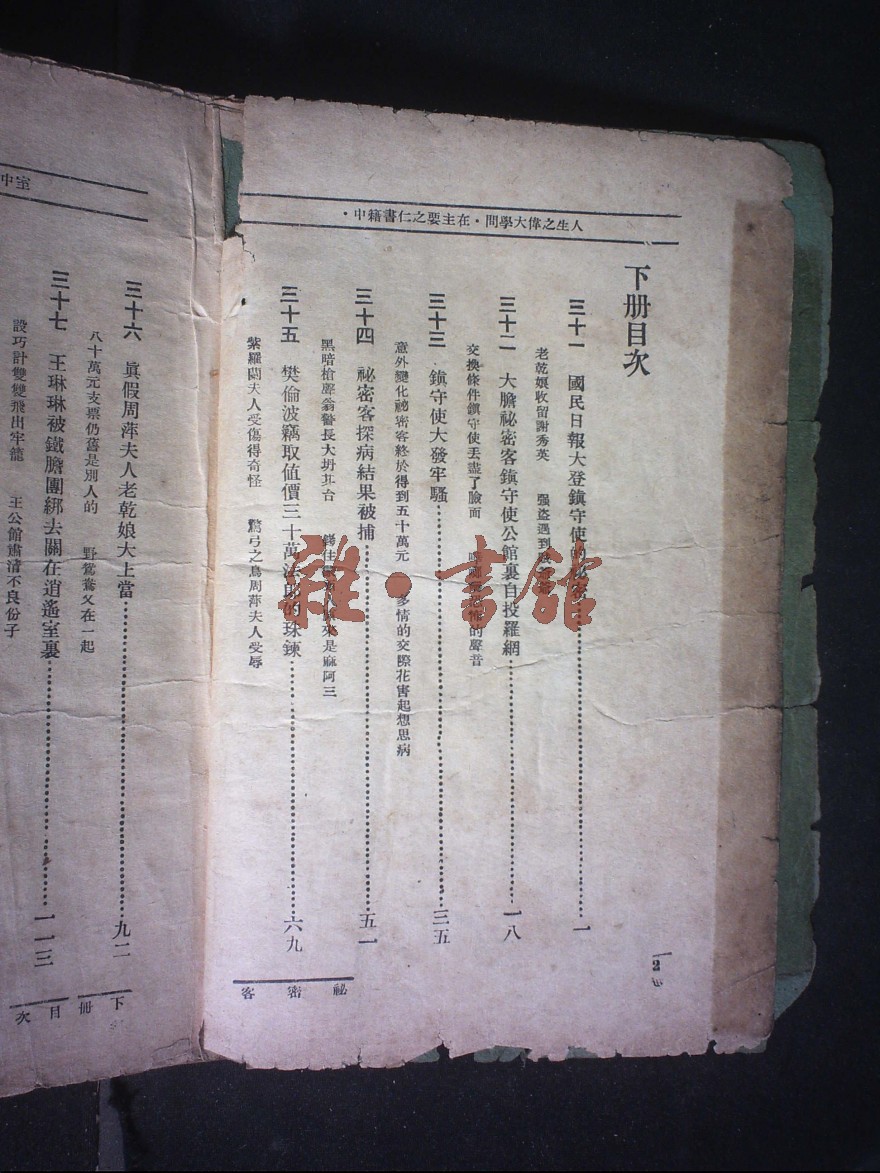 人生之偉大學問·在主要之仁書籍中·
下册目次
三十一 國民日報大登鎭守使的秘密 一
老乾娘收留謝秀英 强盗遇到
三十二 大膽祕密客鎭守使公館裏自投羅網 一八
交換條件鎭守使丢盡了臉面 的聲音
三十三 鎭守使大發牢騷 三五
意外變化祕密客終於得到五十萬元 多情的交際花害起想思病
三十四 祕密客探病結果被捕 五一
黑暗槍聲翁警長大坍其台 原來是麻阿三
三十五 樊倫波竊取值價三十萬法郎的珠鍊 六九
紫羅蘭夫人受傷得奇怪 驚弓之鳥周萍夫人受辱
祕密客
2
室中
三十六 眞假周萍夫人老乾娘大上當 九二
八十萬元支票仍舊是別人的 野鴛鴦又在一起
三十七 王琳琳被鐵膽團綁去關在逍遙室裏 一一三
設巧計雙雙飛出牢籠 王公館肅清不良份子
下册目次
雅·書館